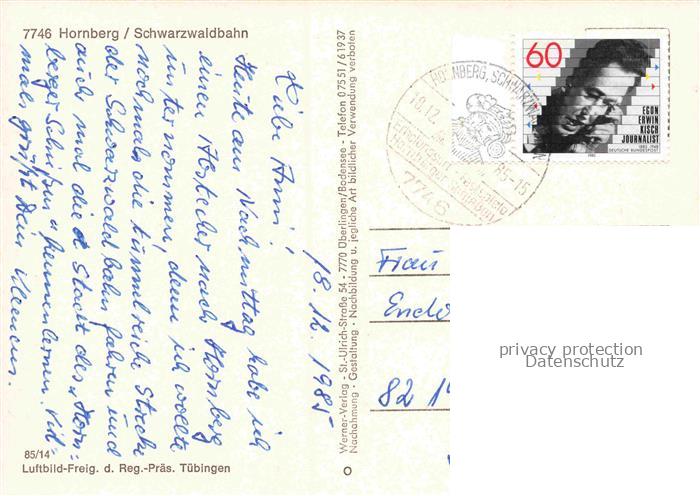 7746 Hornberg / Schwarzwaldbahn
18.12.1985
Liebe Anni!
Heute am Nachmittag habe ich
einen Abstecher nach Hornberg
unternommen, denn ich wollte
nochmals die tunnelreiche Strecke
der Schwarzwaldbahn fahren und
auch mal die Stadt des „Horn=
berger Schießen" kennenlernen. Viel=
mals grüßt Dein Clemens.
85/14
Luftbild-Freig. d. Reg.-Präs. Tübingen
Werner-Verlag · St.-Ulrich-Straße 54 · 7770 Überlingen/Bodensee · Telefon 07551/61937
Nachahmung · Gestaltung · Nachbildung u. jegliche Art bildlicher Verwendung verboten
HORNBERG, SCHWARZW
18.12. 85-15
7746
60
EGON
ERWIN
KISCH
JOURNALIST
1885-1948
DEUTSCHE BUNDESPOST
1985
Frau
82
privacy protection
Datenschutz